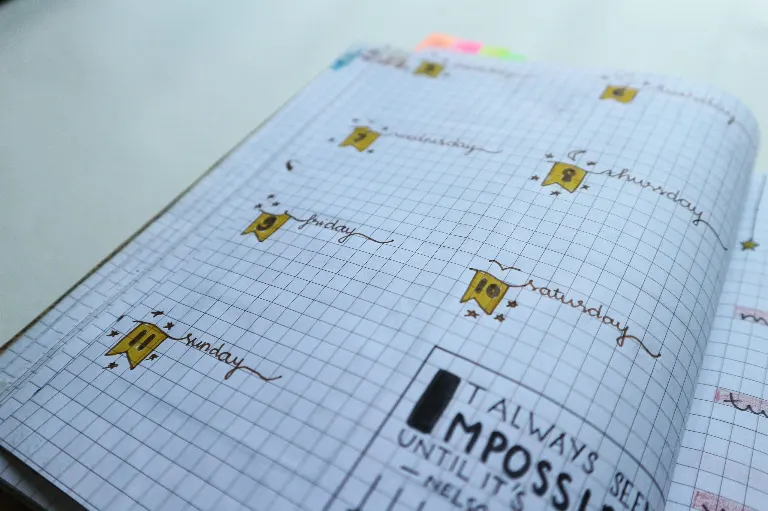 5
6 tuesday
7 wednesday
8 thursday
9 friday
10 saturday
11 sunday
IT ALWAYS SEE
IMPOSSI
UNTIL IT'S
— NELSO